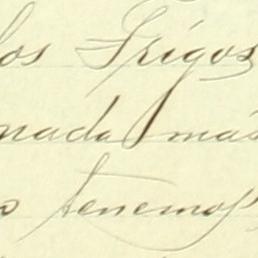 los Trigos
nada más
tenemos